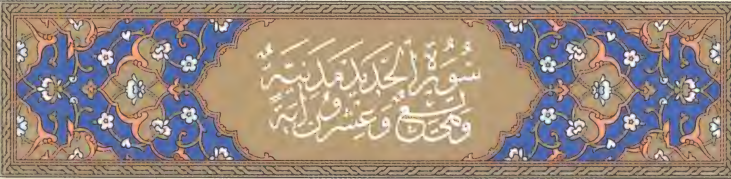 سُورَةُ الْحَدِيدِ مَدَنِيَّةٌ
وَهِيَ تِسْعٌ وَعِشْرُونَ اٰيَةً